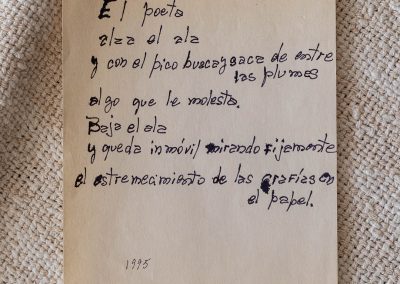 El poeta
alza el ala
y con el pico busca y saca de entre
las plumas
algo que le molesta.
Baja el ala
y queda inmóvil mirando fijamente
el estremecimiento de las grafías en
el papel.
1995